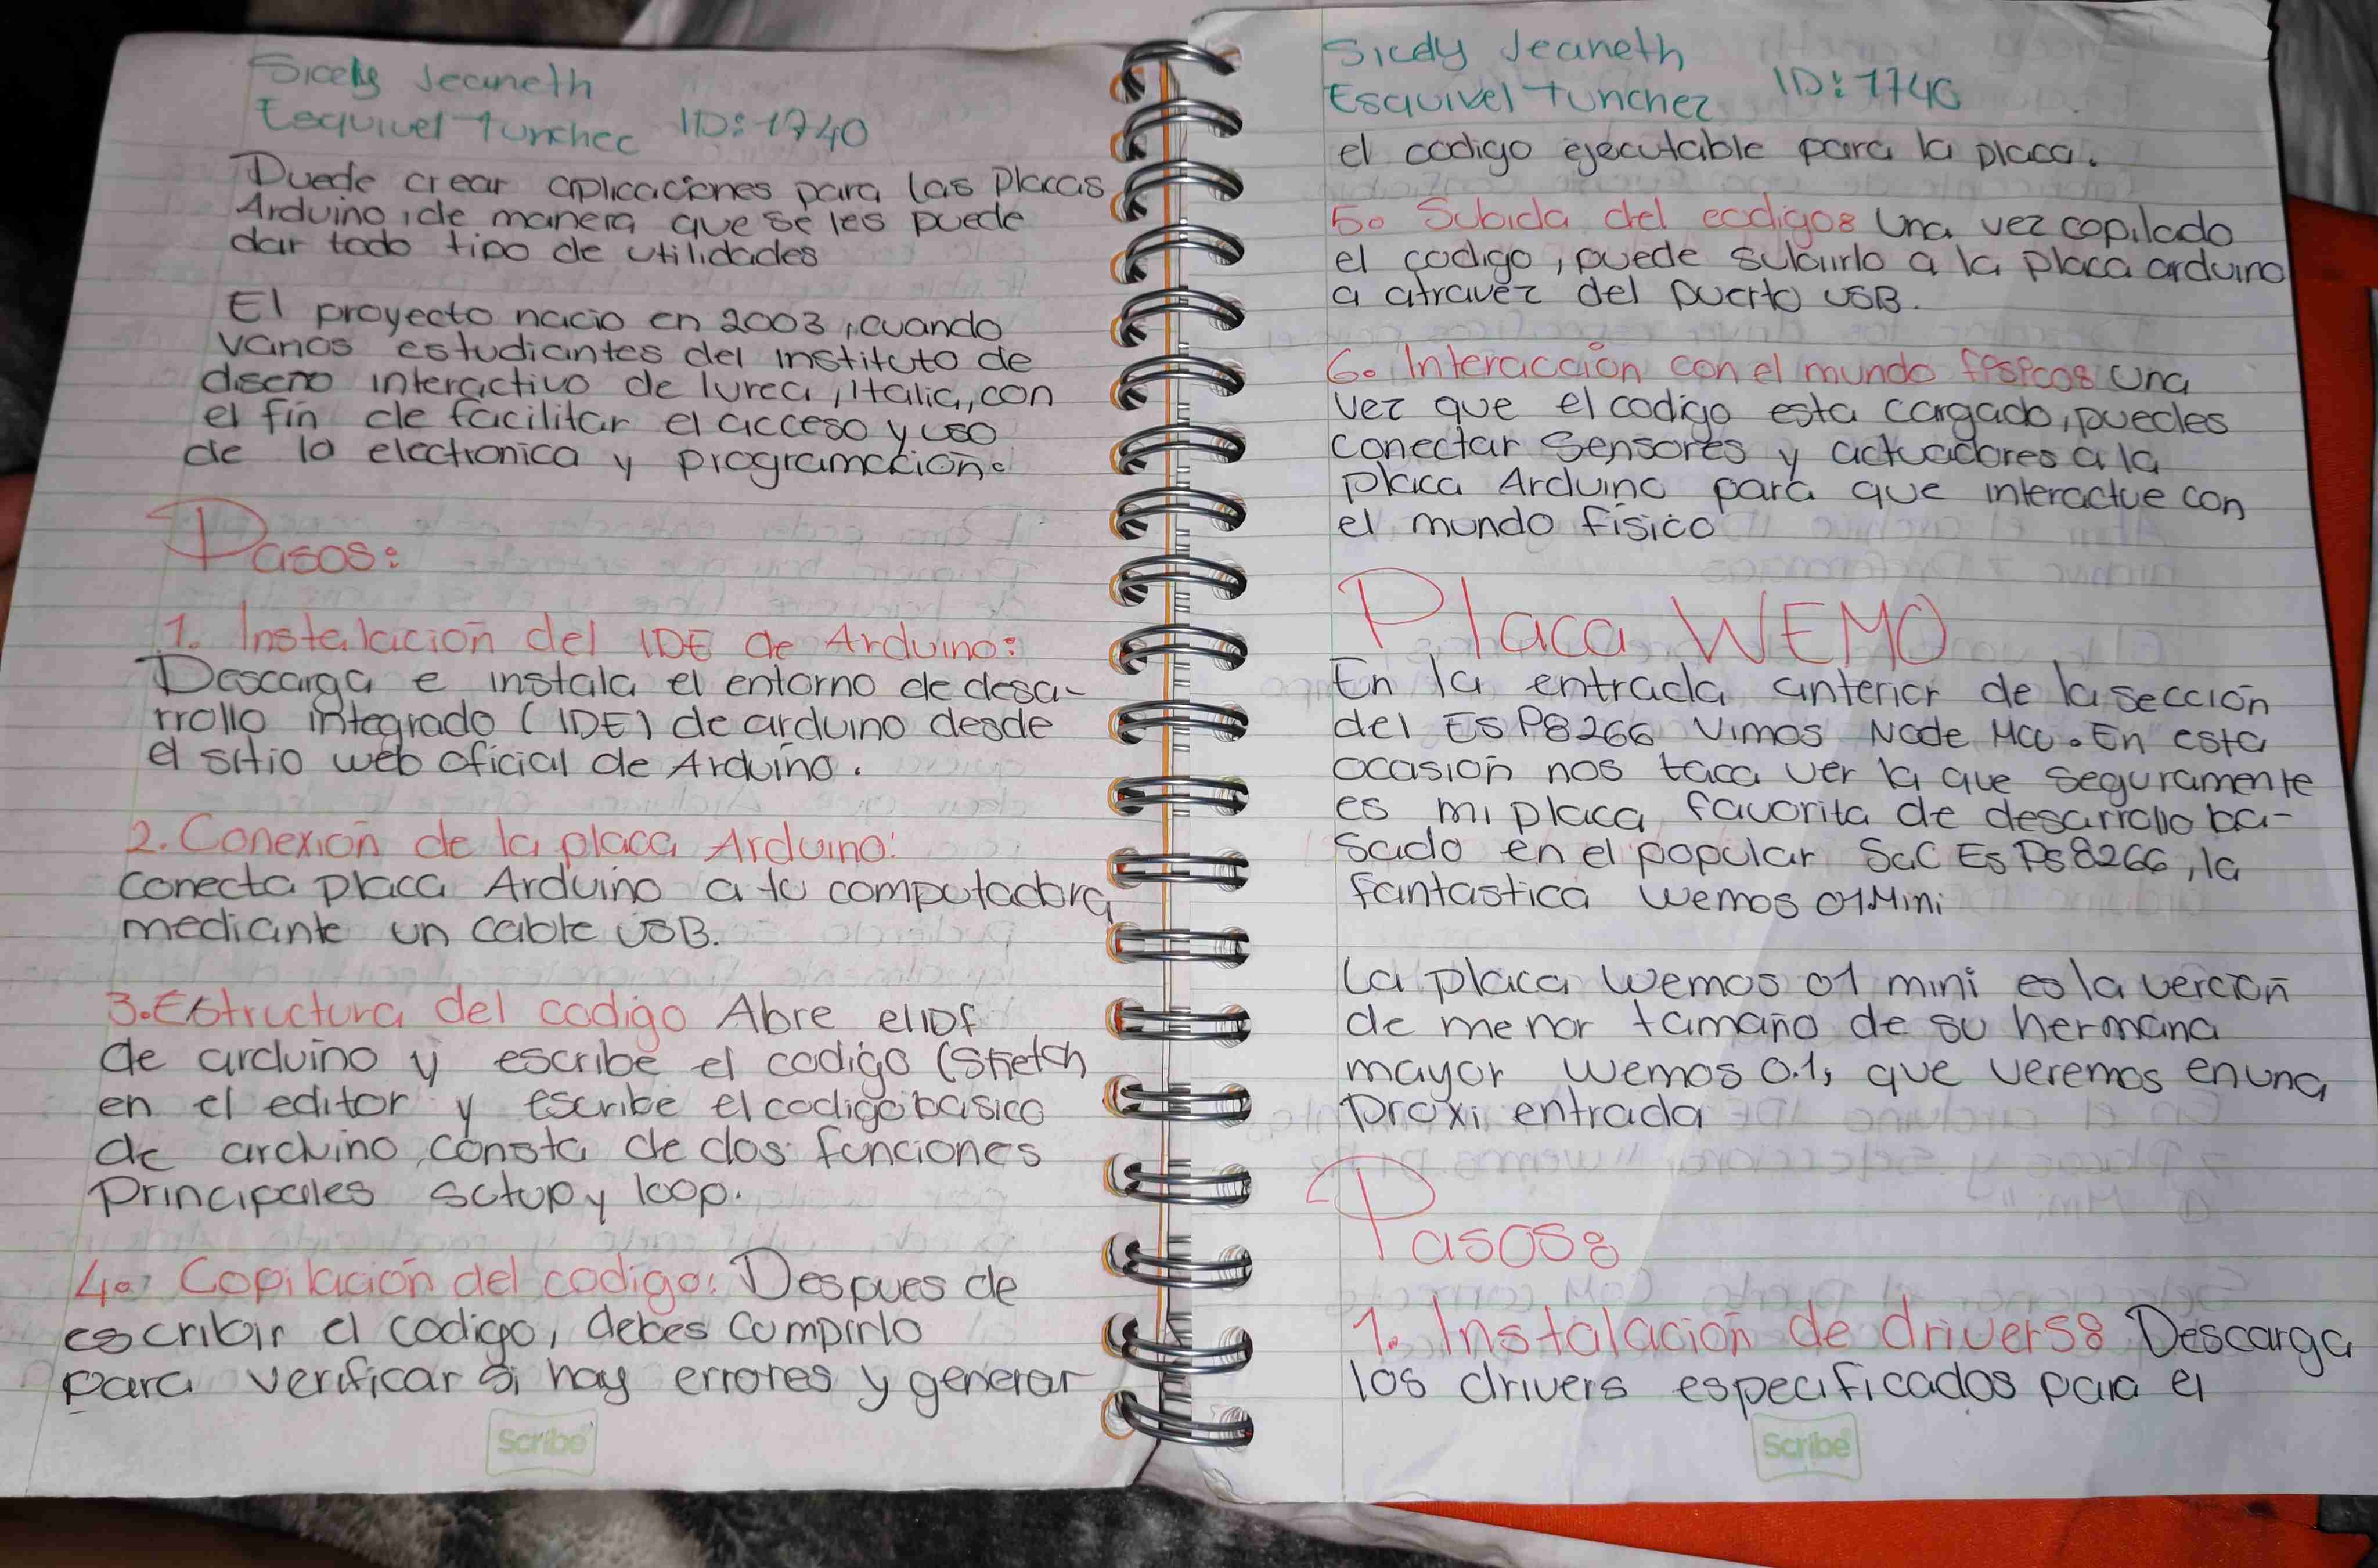 Sicely Jeaneth
Esquivel Tunchec ID: 1740
Puede crear aplicaciones para las Placas
Arduino, de manera que se les puede
dar todo tipo de utilidades
El proyecto nacio en 2003, cuando
varios estudiantes del instituto de
diseño interactivo de Ivrea, Italia, con
el fin de facilitar el acceso y uso
de la electronica y programación.
Pasos:
1. Instalación del IDE de Arduino:
Descarga e instala el entorno de desa-
rrollo integrado (IDE) de arduino desde
el sitio web oficial de Arduino.
2. Conexión de la placa Arduino:
conecta placa Arduino a tu computadora
mediante un cable USB.
3. Estructura del codigo Abre el IDE
de arduino y escribe el codigo (Sketch
en el editor y escribe el codigo basico
de arduino consta de dos funciones
Principales setup y loop.
4. Copilación del codigo: Despues de
escribir el codigo, debes Compirlo
para verificar si hay errores y generar
Scribe
Sicely Jeaneth
Esquivel Tunchez ID: 1740
el codigo ejecutable para la placa.
5. Subida del codigo: Una vez copilado
el codigo, puede subirlo a la placa arduino
a atravez del puerto USB.
6. Interacción con el mundo físico: Una
vez que el codigo esta cargado, puedes
conectar sensores y actuadores a la
placa Arduino para que interactue con
el mundo físico
Placa WEMO
En la entrada anterior de la sección
del ESP8266 Vimos Node MCU. En esta
ocasión nos toca ver la que seguramente
es mi placa favorita de desarrollo ba-
sado en el popular SoC EsPs8266, la
fantastica Wemos 01 Mini
La placa Wemos 01 mini es la verción
de menor tamaño de su hermana
mayor Wemos 0.1, que veremos en una
proxi entrada
Pasos:
1. Instalación de drivers: Descarga
los drivers especificados para el
Scribe